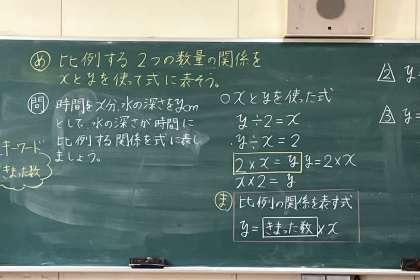 め 比例する2つの数量の関係を
xとyを使って式に表そう。
問 時間をx分、水の深さをycm
として、水の深さが時間に
比例する関係を式に表し
ましょう。
キーワード
きまった数
○xとyを使った式
y÷2=x
y÷x=2
2×x=y y=2×x
x×2=y
ま 比例の関係を表す式
y=きまった数×x
2 y
3 y=